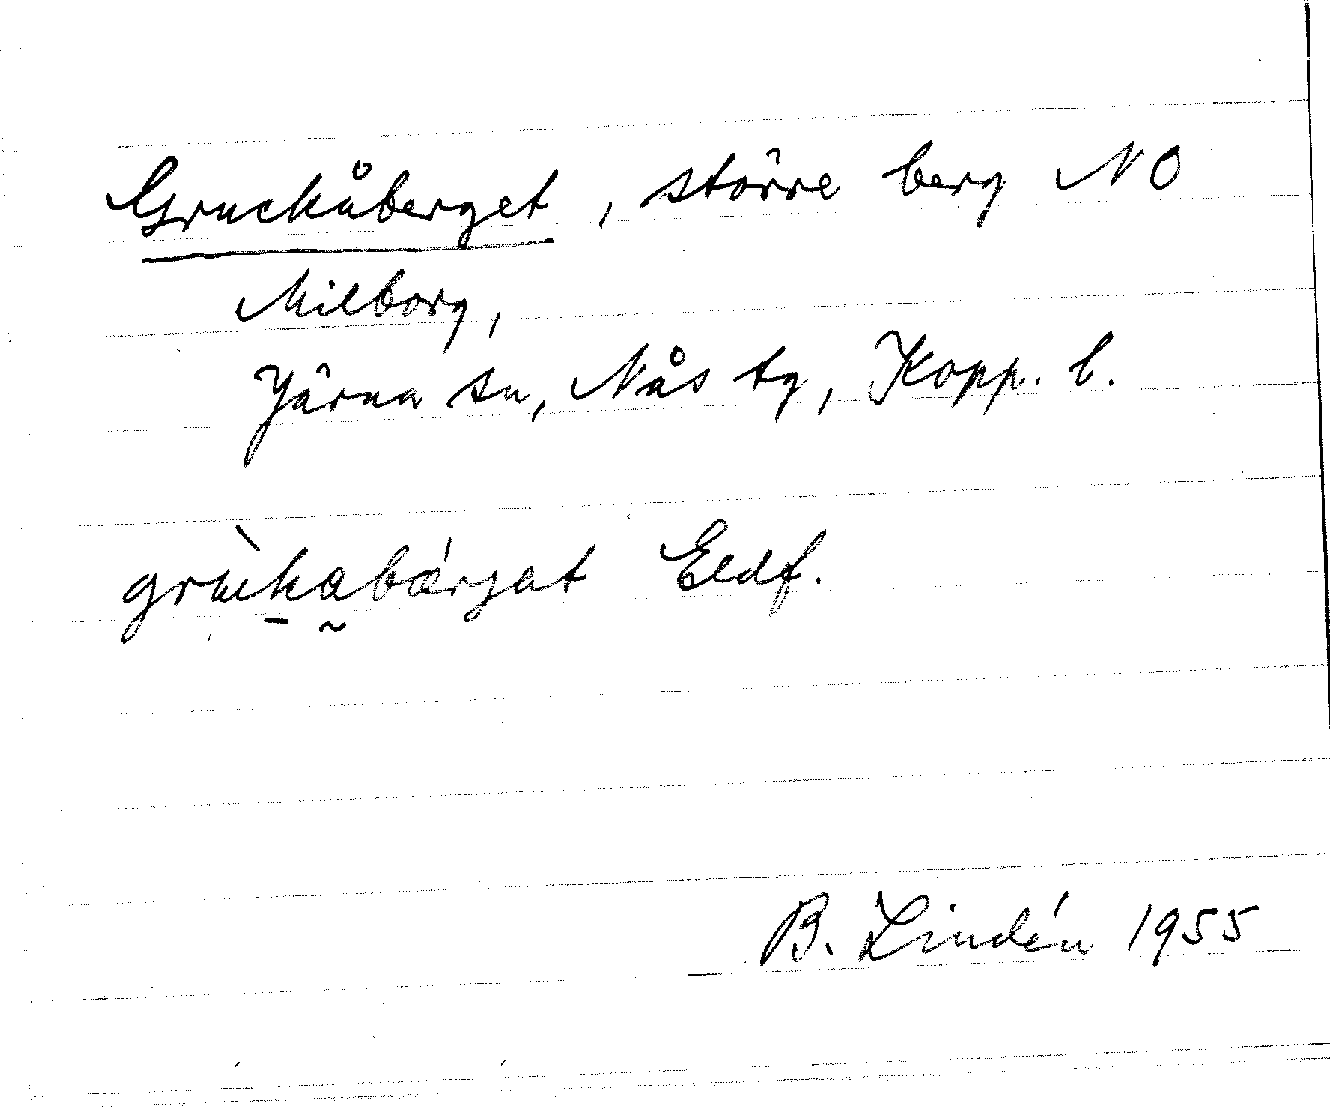 Gruckåberget, större berg NO
Milborg,
Järna sn, Nås tg, Kopp. l.
grùkabárgat Eldf.
B. Lindén 1955